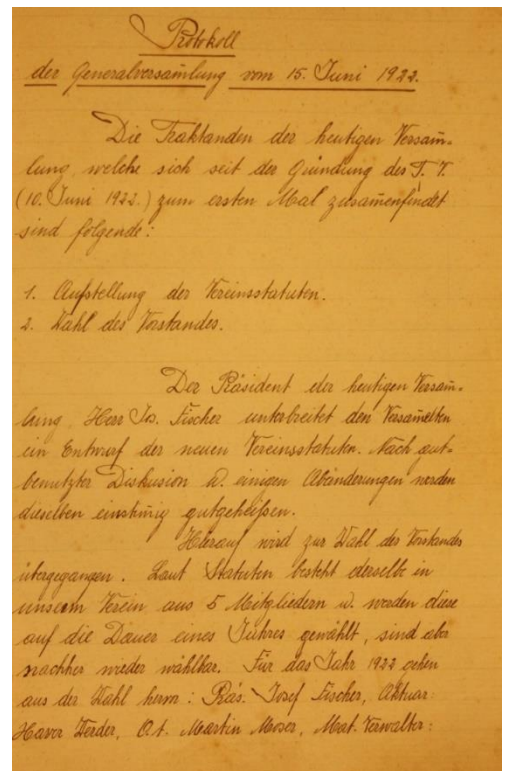 Protokoll
der Generalversam̅lung vom 15. Juni 1922.
Die Traktanden der heutigen Versam̅-
lung, welche sich seit der Gründung des T. V.
(10. Juni 1922.) zum ersten Mal zusam̅enfindet
sind folgende:
1. Aufstellung der Vereinsstatuten.
2. Wahl des Vorstandes.
Der Präsident der heutigen Versam̅-
lung, Herr Jos. Fischer unterbreitet den Versam̅elten
ein Entwurf der neuen Vereinsstatuten. Nach gut-
benutzter Diskusion u. einigen Abänderungen werden
dieselben einstim̅ig gutgeheißen.
Hierauf wird zur Wahl des Vorstandes
übergegangen. Laut Statuten besteht derselbe in
unserm Verein aus 5 Mitgliedern u. werden diese
auf die Dauer eines Jahres gewählt, sind aber
nachher wieder wählbar. Für das Jahr 1922 gehen
aus der Wahl hervor: Präs. Josef Fischer, Aktuar:
Xaver Herder, Ot. Martin Moser, Mat. Verwalter: